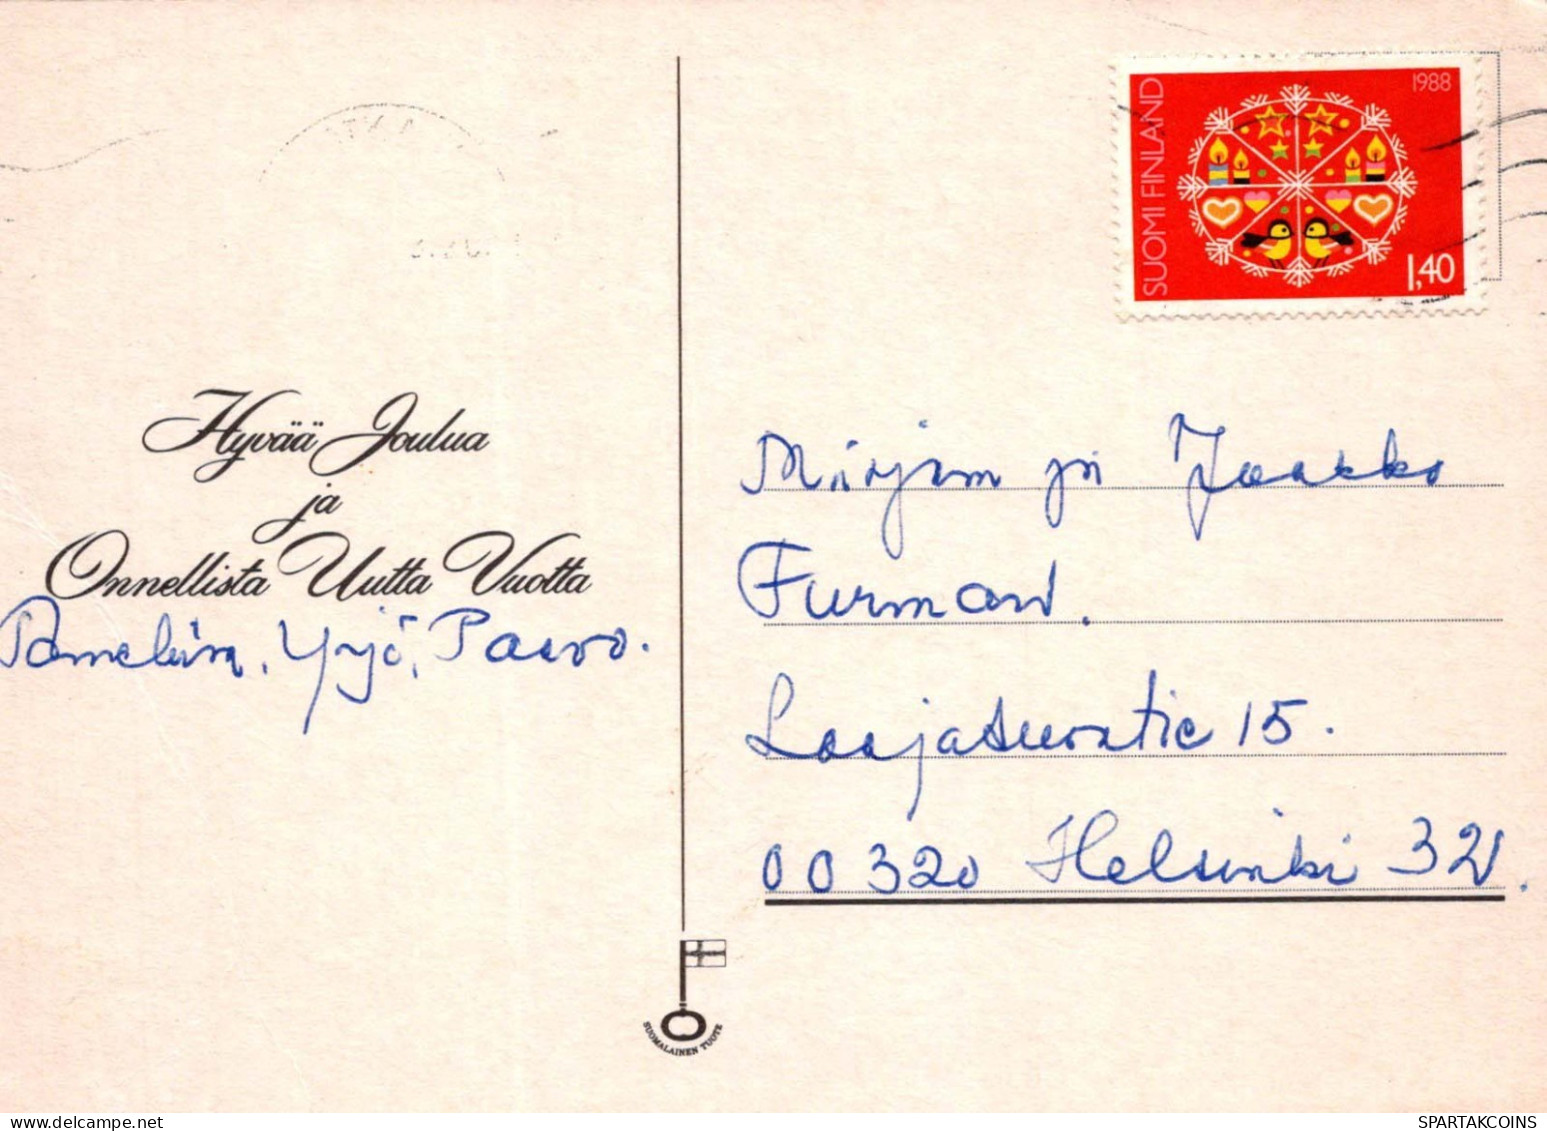 SUOMI FINLAND
1988
1,40
Hyvää Joulua
ja
Onnellista Uutta Vuotta
Yrjö, Paavo.
Mirjam ja Jaakko
Furman.
Laajasuontie 15.
00320 Helsinki 32.
SUOMALAINEN TUOTE
oldthing.com
SPARTAKCOINS